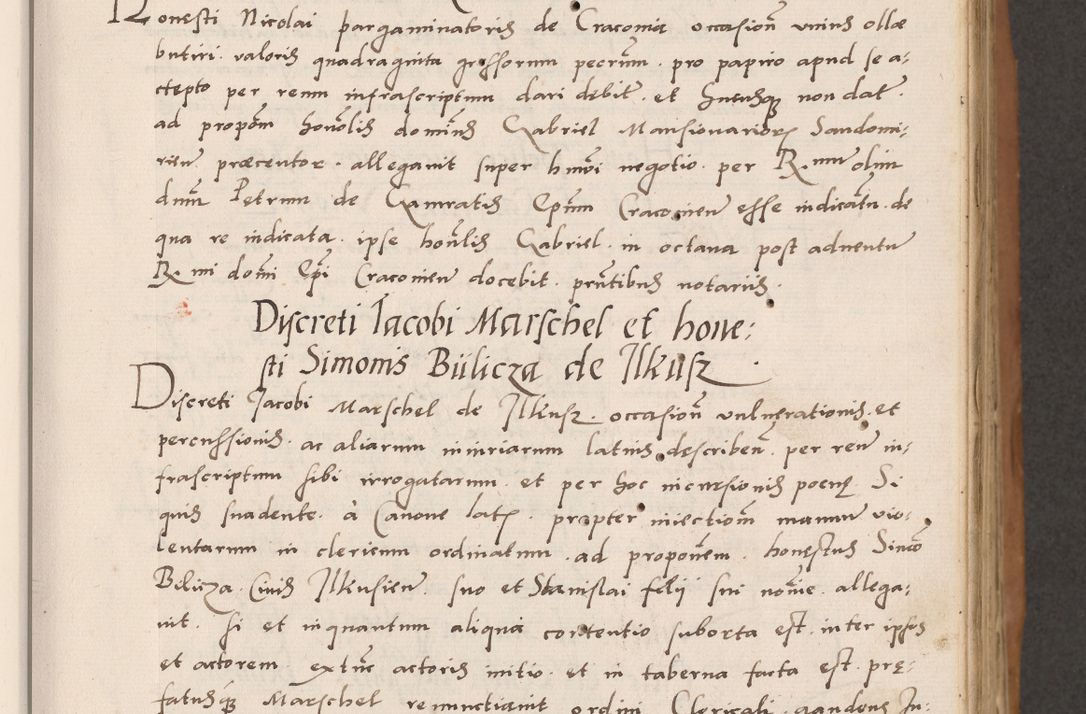 Honesti Nicolai pargaminatoris de Cracovia occasion̄ unius ollæ
butiri valoris quadraginta grossorum pecūm pro papiro apud se a-
ctepto per reum infrascriptum dari debit̄ et hucusq̨ non dat̄
ad propōm honōlis dominūs Gabriel Mansionariorȝ Sandomi:
rien̄ præcentor allegavit super hmōi negotio per R mum olim
dum̄ Petrum de Gamratis Ep̄um Cracovien̄ esse iudicatū de
qua re iudicata ipse honōlis Gabriel in octava post adventū
R mi domī Ep̄i Cracovien̄ docebit prn̄tibus notariis
Discreti Iacobi Marschel et hone:
sti Simonis Bülicza de Ilkusz
Discreti Jacobi Marschel de Ilkusz occasion̄ vulnerationis et
percussionis ac aliarum iniuriarum latius describen̄ per reū in:
frascriptum sibi irrogatarum et per hoc incursionis poenę Si
quis suadente à Canone latȩ propter iniectiom̄ manuū vio:
lentarum in clericum ordinatum ad proponem̄ honęstus Simō
Bilicza Civis Ilkusien̄ suo et Stanislai felii sui noīe allega:
vit Si et inquantum aliqua contentio suborta est inter ipsos
et actorem extūc actoris initio et in taberna facta est prę:
fatusq̨ Marschel renunctiavit ordini Clericali gaudens In: